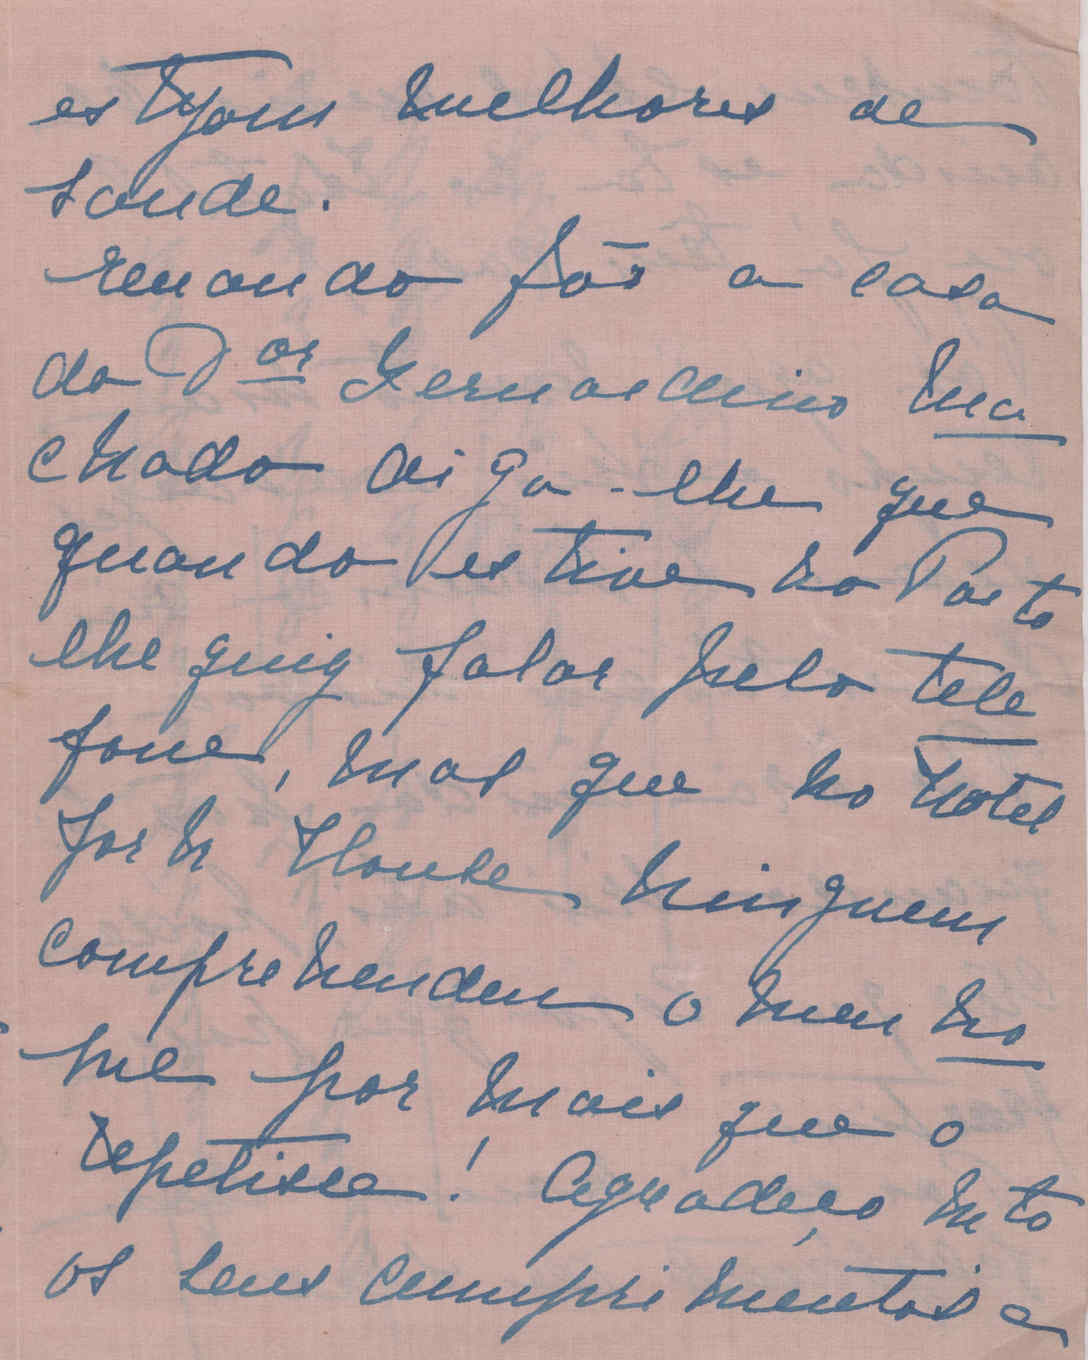 estejam melhores de
saude.
Quando fôr a casa
do Dor Bernardino Ma
chado diga-lhe que
quando estive no Porto
lhe quiz falar pelo tele
fone, mas que no Hotel
York House ninguem
comprehendeu o meu no
me por mais que o
repetisse! Agradeço mto
os seus cumprimentos e